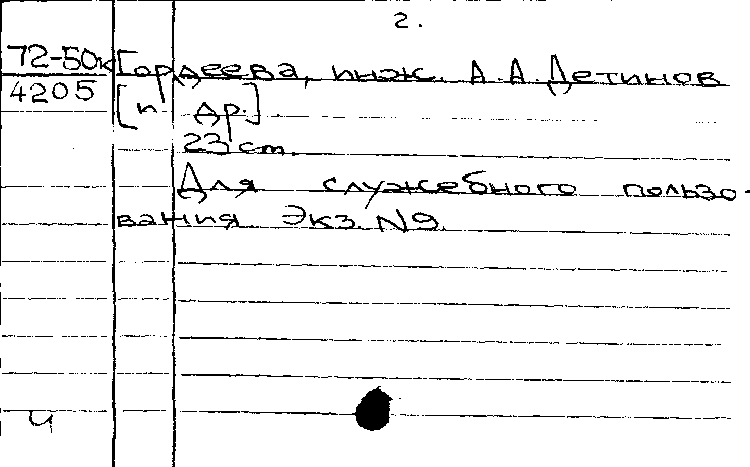 2.
72-50к Гордеева, инж. А.А. Детинов
4205 [и др.]
23 cm.
Для служебного пользо-
вания Экз. N9.
ч